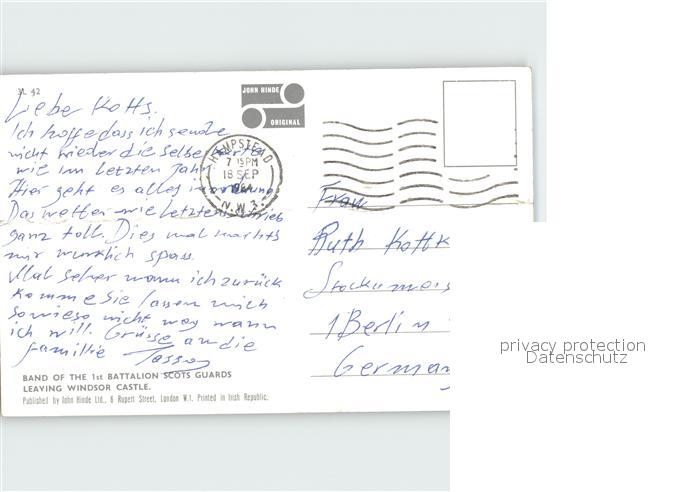 3L 42
JOHN HINDE
ORIGINAL
HAMPSTEAD
7 15PM
18 SEP
1964
N.W.3.
Lieber Kotts.
Ich hoffe dass ich sende
nicht wieder die Selbe Karte
wie im letzten Jahr
Hier geht es alles in ordnung
Das wetter wie letztens
ganz toll. Dies mal machts
mir wirklich spass.
Mal seher wann ich zurück
komme Sie lassen mich
sowieso nicht weg wann
ich will. Grüsse an die
familie
Frau
Ruth Kottk
1 Berlin
German
BAND OF THE 1st BATTALION SCOTS GUARDS
LEAVING WINDSOR CASTLE.
Published by John Hinde Ltd., 6 Rupert Street, London W.1. Printed in Irish Republic.
privacy protection
Datenschutz